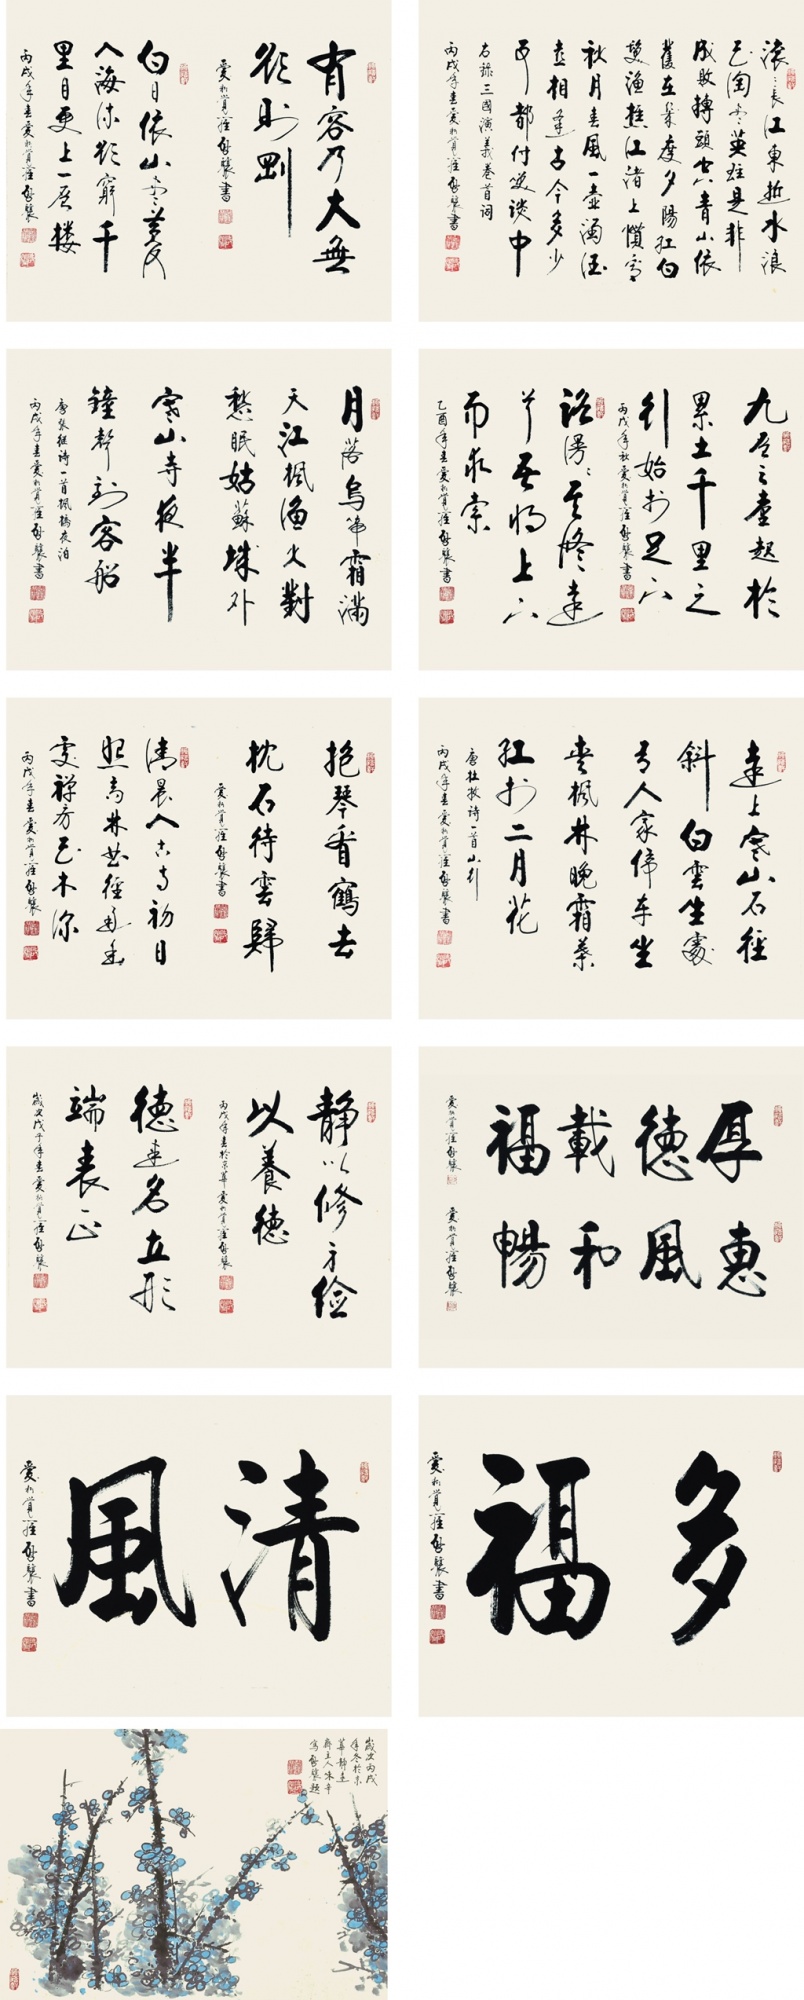 有容乃大無
欲則剛
愛新覺羅啟驤書
白日依山盡黃河
入海流欲窮千
里目更上一層樓
丙戌年春愛新覺羅啟驤
滾滾長江東逝水浪
花淘盡英雄是非
成敗轉頭空青山依
舊在幾度夕陽紅白
髮漁樵江渚上慣看
秋月春風一壺濁酒
喜相逢古今多少
事都付笑談中
右錄三國演義卷首詞
丙戌年春愛新覺羅啟驤書
月落烏啼霜滿
天江楓漁火對
愁眠姑蘇城外
寒山寺夜半
鐘聲到客船
唐張繼詩一首楓橋夜泊
丙戌年春愛新覺羅啟驤書
九層之臺起於
累土千里之
行始於足下
丙戌年秋愛新覺羅啟驤書
路漫漫其修遠
兮吾將上下
而求索
乙酉年春愛新覺羅啟驤書
抱琴看鶴去
枕石待雲歸
愛新覺羅啟驤書
清晨入古寺初日
照高林曲徑通幽
處禪房花木深
丙戌年春愛新覺羅啟驤
遠上寒山石徑
斜白雲生處
有人家停車坐
愛楓林晚霜葉
紅於二月花
唐杜牧詩一首山行
丙戌年春愛新覺羅啟驤書
靜以修身儉
以養德
丙戌年春於京華愛新覺羅啟驤
德建名立形
端表正
歲次戊子年春愛新覺羅啟驤
厚德載福
愛新覺羅啟驤
惠風和暢
愛新覺羅啟驤
清風
愛新覺羅啟驤書
多福
愛新覺羅啟驤書
歲次丙戌
年冬於京
華靜遠
齋主人味辛
寫啟驤題